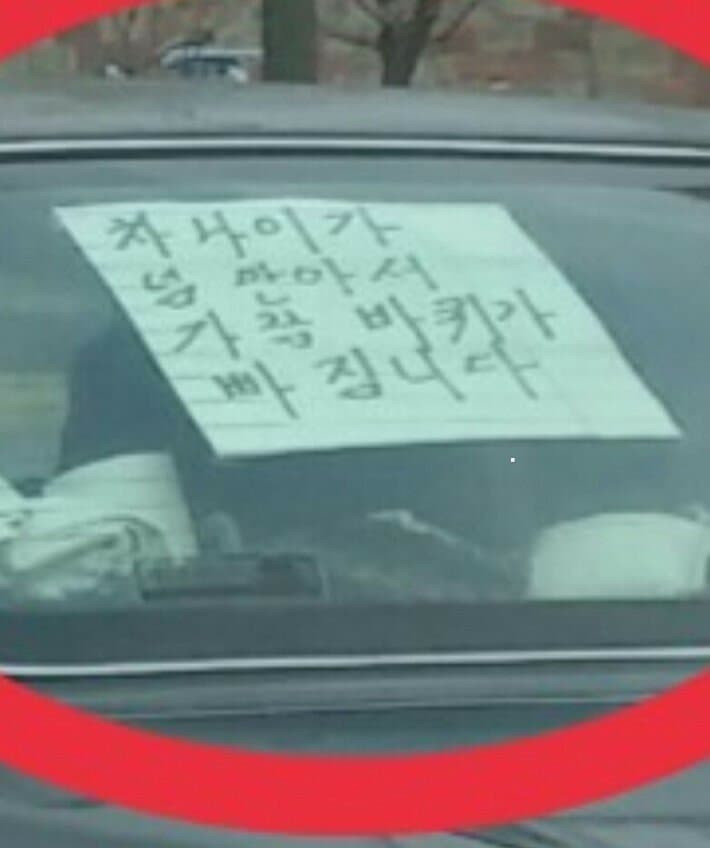 차나이가
넘 만아서
가끔 바퀴가
빠집니다